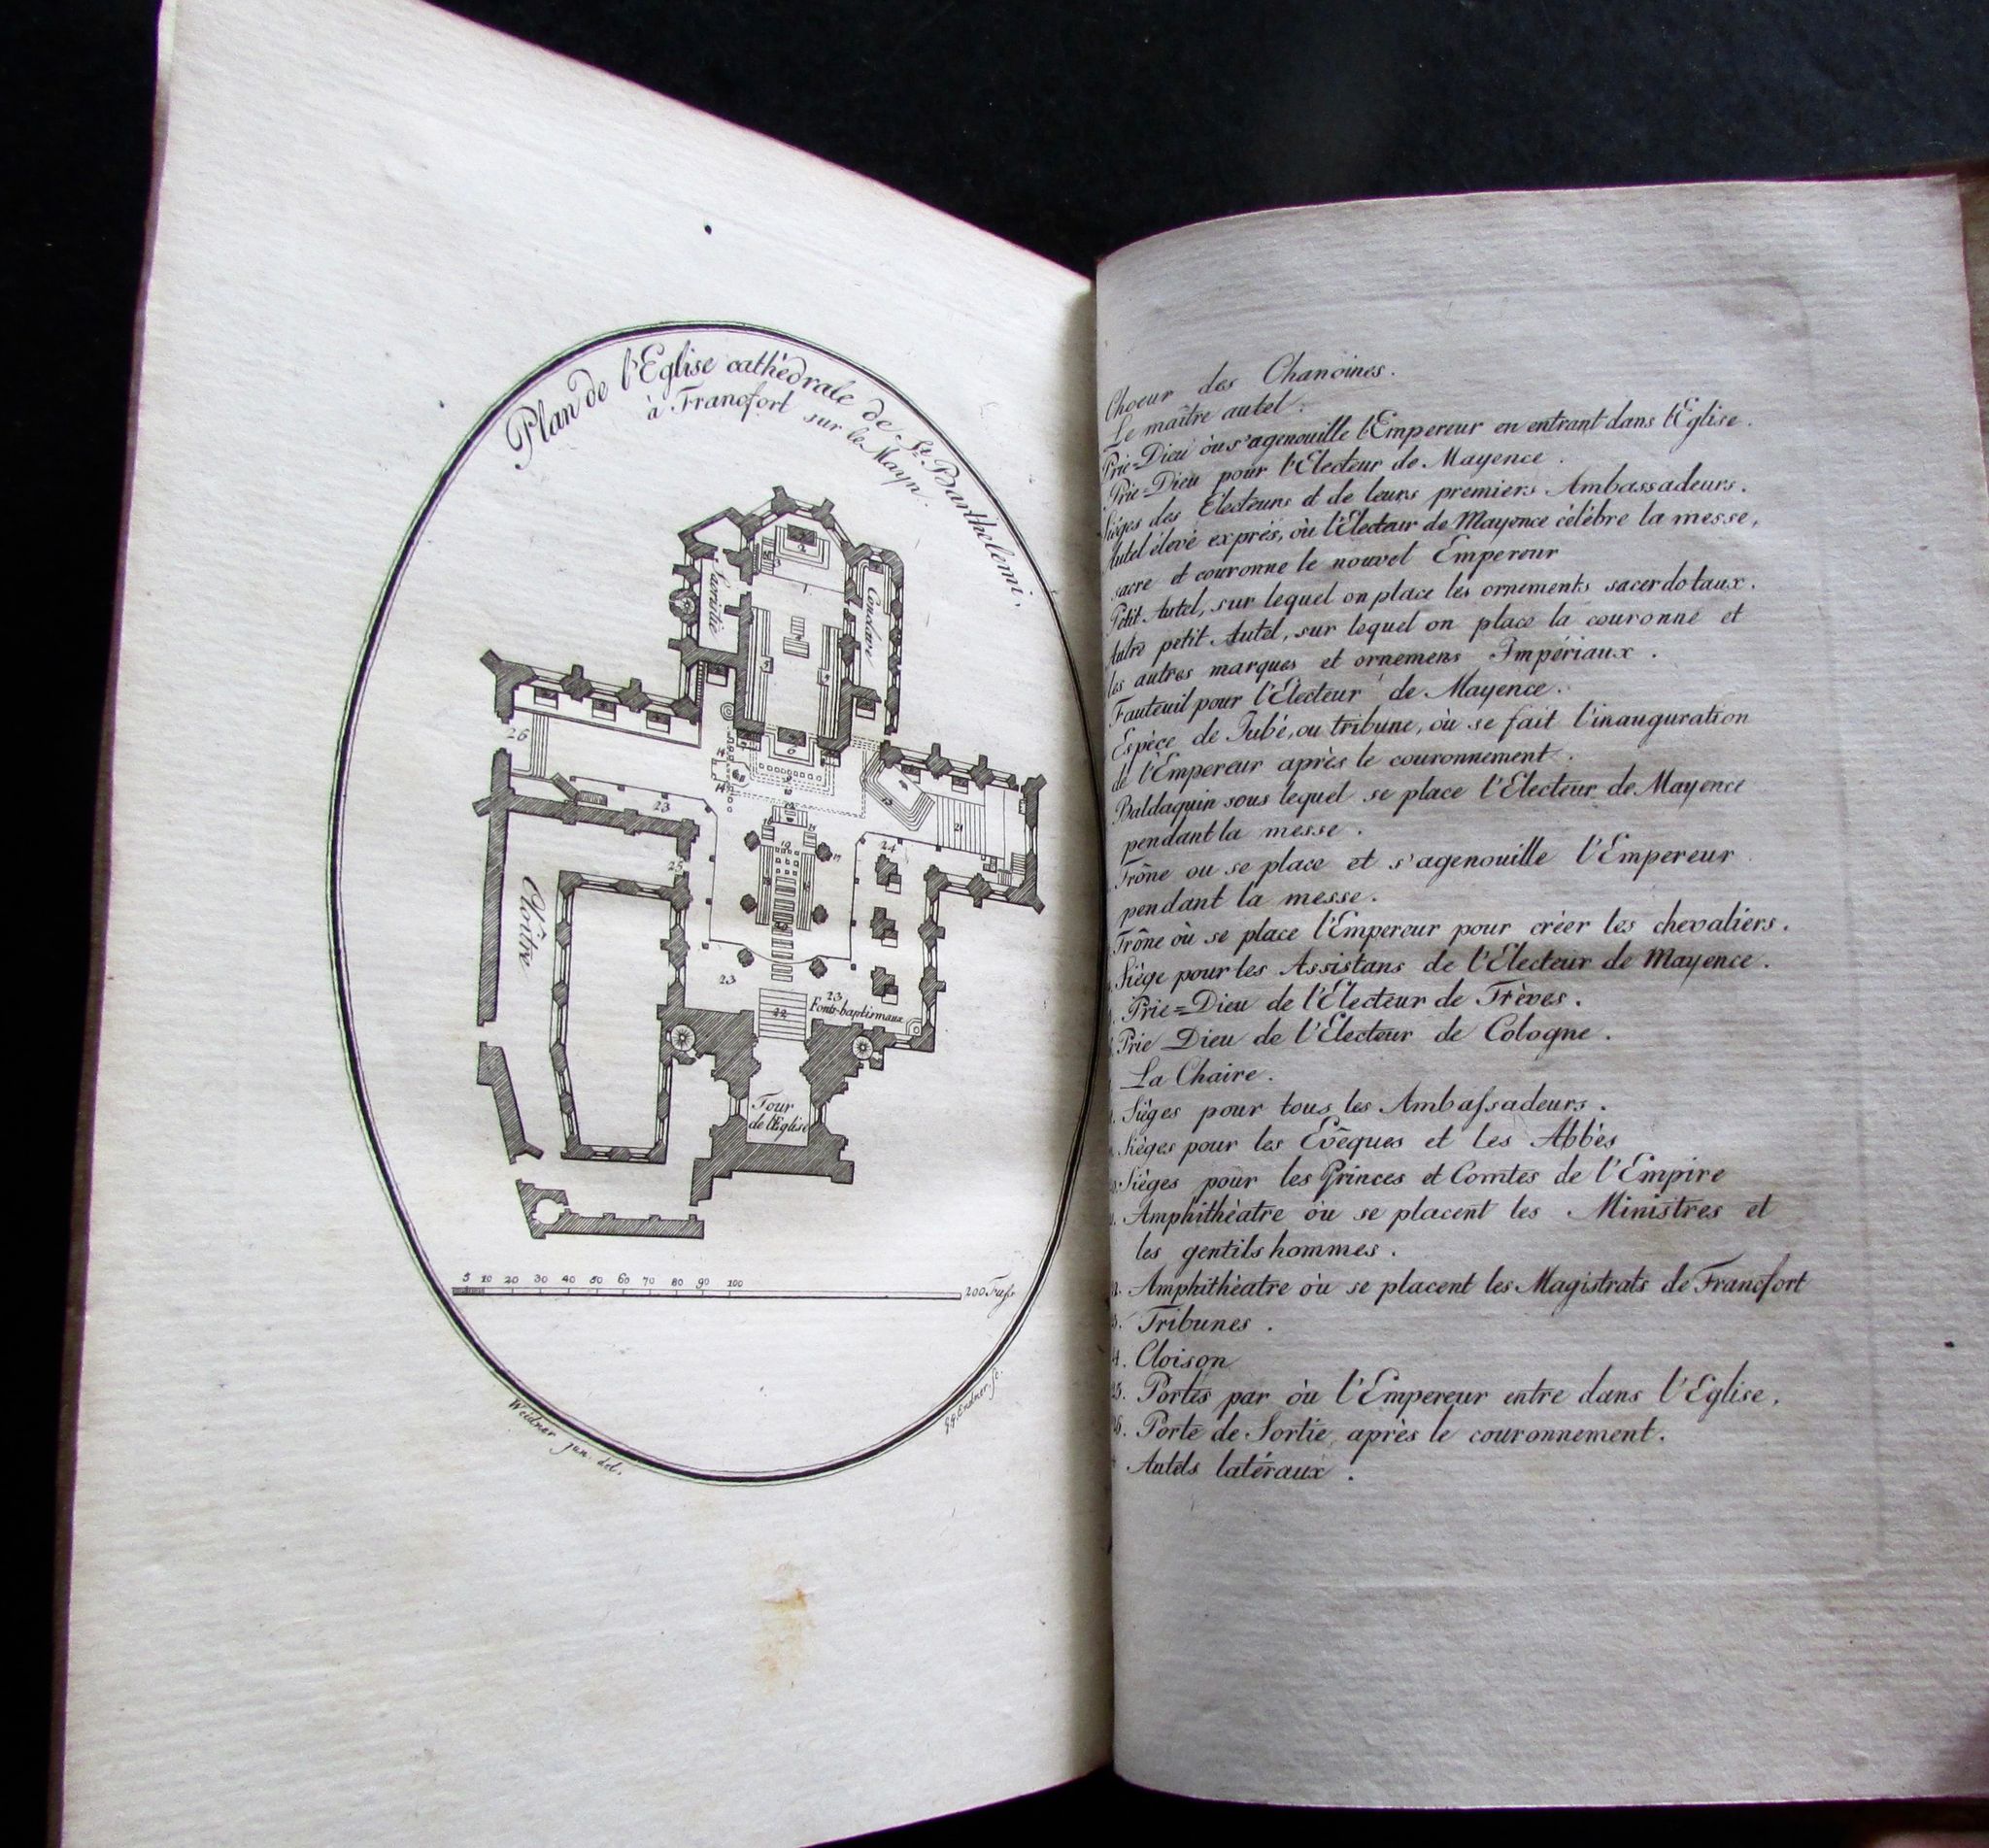 Plan de l'Eglise cathédrale de St. Barthelemi.
à Francfort sur le Mayn.
Conclave
26
23
24
25
21
Cloître
23
23
Fonts-baptismaux
22
Tour
de l'Eglise
5 10 20 30 40 50 60 70 80 90 100
200 Fuſs
Weidner jun. del.
G.G. Endner. sc.
Choeur des Chanoines.
Le maître autel.
Prie=Dieu où s'agenouille l'Empereur en entrant dans l'Eglise.
Prie=Dieu pour l'Electeur de Mayence.
Sièges des Electeurs et de leurs premiers Ambassadeurs.
Autel élevé exprès, où l'Electeur de Mayence célèbre la messe,
sacre et couronne le nouvel Empereur
Petit Autel, sur lequel on place les ornements sacerdotaux.
Autre petit Autel, sur lequel on place la couronne et
les autres marques et ornemens Impériaux.
Fauteuil pour l'Electeur de Mayence.
Espèce de Jubé, ou tribune, où se fait l'inauguration
de l'Empereur après le couronnement.
Baldaquin sous lequel se place l'Electeur de Mayence
pendant la messe.
Trône ou se place et s'agenouille l'Empereur
pendant la messe.
Trône où se place l'Empereur pour créer les chevaliers.
Siège pour les Assistans de l'Electeur de Mayence.
Prie=Dieu de l'Electeur de Trèves.
Prie Dieu de l'Electeur de Cologne.
La Chaire.
Sièges pour tous les Ambaſsadeurs.
Sièges pour les Evêques et les Abbés
Sièges pour les Princes et Comtes de l'Empire
Amphithèatre où se placent les Ministres et
les gentilshommes.
Amphithèatre où se placent les Magistrats de Francfort
Tribunes.
4. Cloison
5. Portes par où l'Empereur entre dans l'Eglise.
6. Porte de Sortie, après le couronnement.
Autels latéraux.